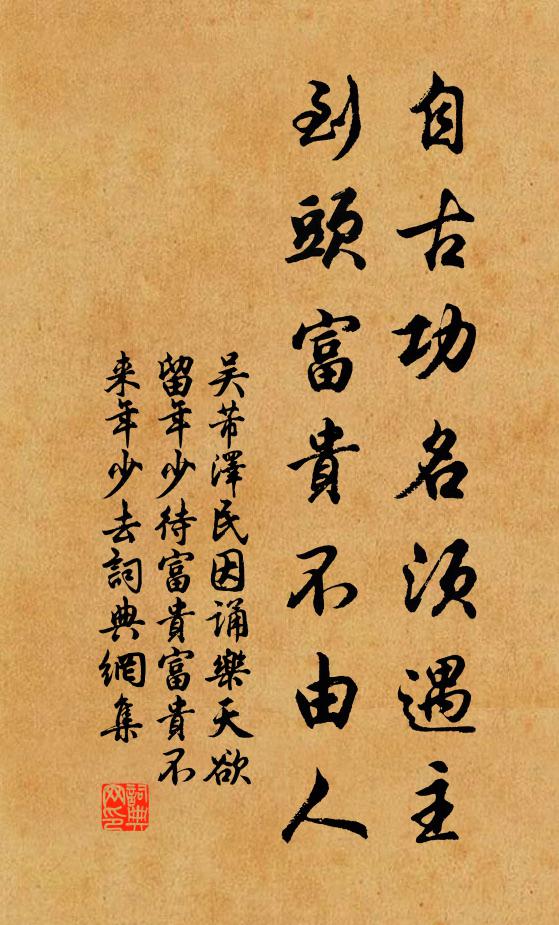 自古功名須遇主
到頭富貴不由人
吴芾澤民因誦樂天欲
留年少待富貴富貴不
来年少去詞典網集
詞典网印